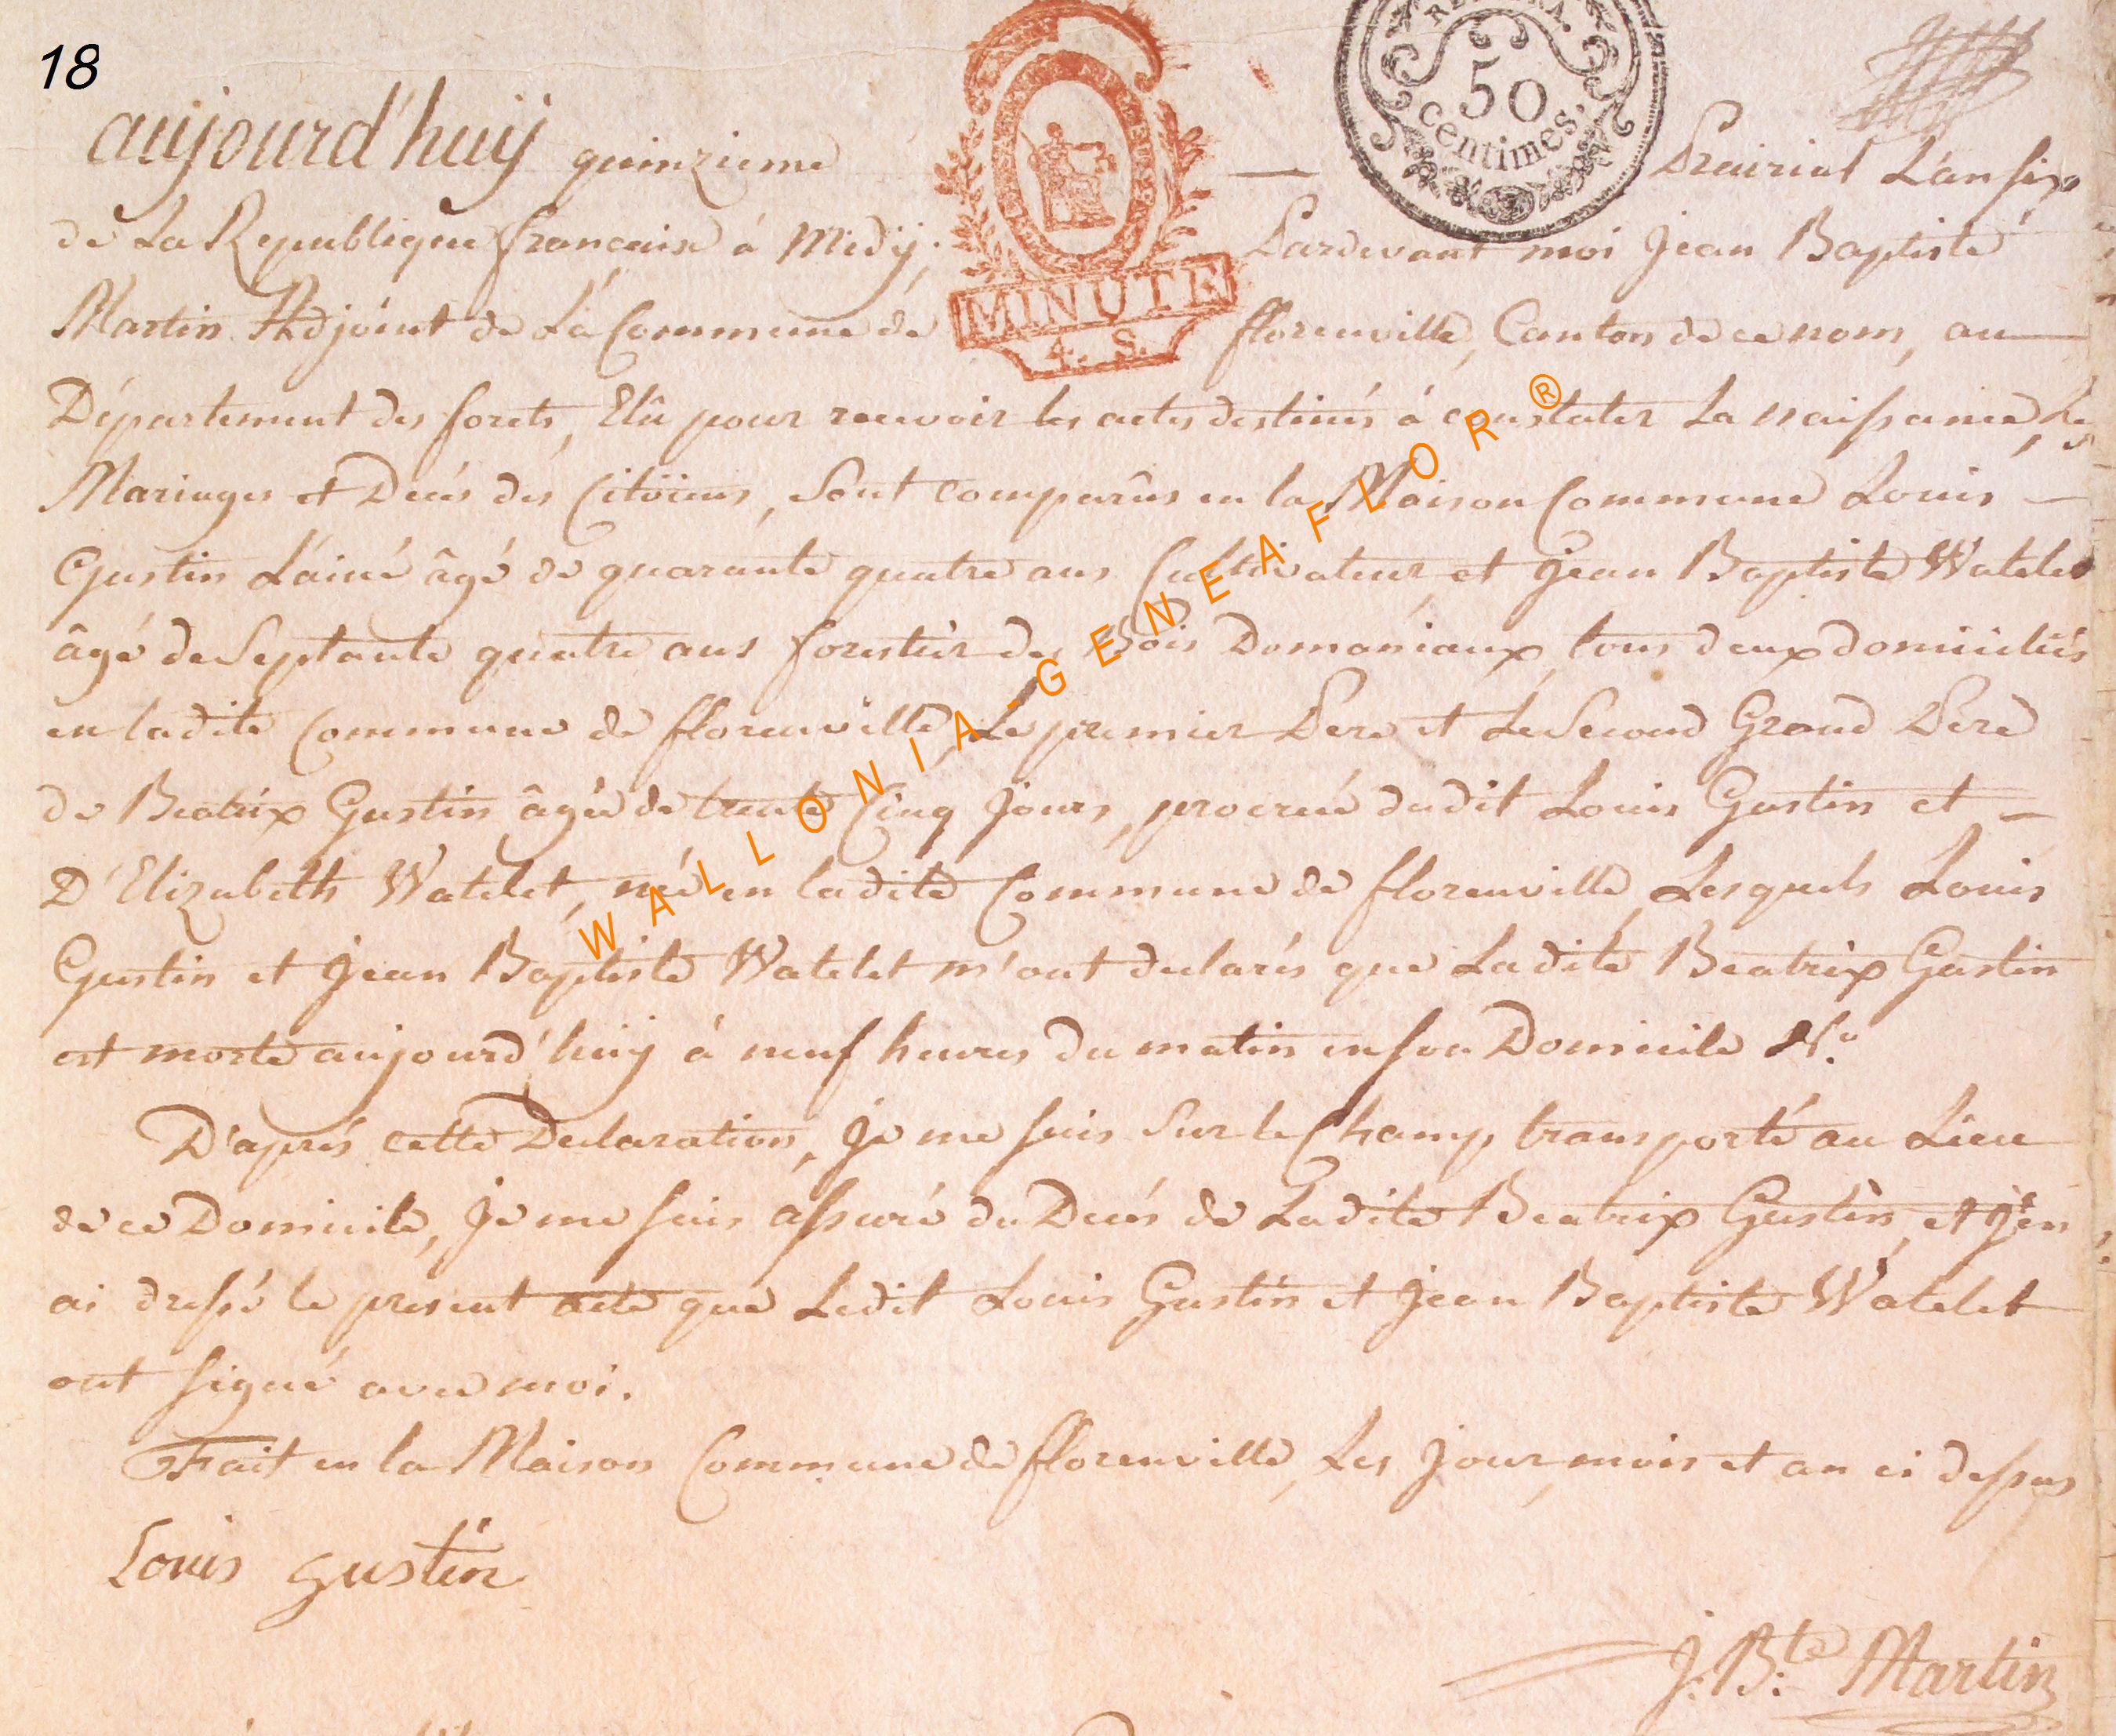 18
REP. FRA.
50
centimes.
aujourd'huÿ quinzieme — Prairial L'an six
de La Republique francaise á Midÿ, Pardevant moi Jean Baptiste
Martin Adjoint de La Commune de florenville, Canton de ce nom, au
Département des forets, Elû pour recevoir les actes destinés à constater La naissance, Les
Mariages et Decés des Citöiens, Sont comparûs en la Maison Commune Louis —
Gustin L'ainé âgé de quarante quatre ans Cultivateur, et Jean Baptiste Watelet
âgé de Septante quatre ans forestier des Bois Domaniaux, tous deux domiciliés
en ladite Commune de florenville, Le premier Pere et Le Second Grand Pere
de Beatrix Gustin âgée de trente Cinq Jours, procreé dudit Louis Gustin et —
D'Elizabeth Watelet, née en ladite Commune de florenville, Lesquels Louis
Gustin et Jean Baptiste Watelet m'ont declarés que Ladite Beatrix Gustin
est morte aujourd'huÿ á neuf heures du matin en son Domicile N.o
D'aprés cette Declaration, Je me suis Sur le Champ transporté au Lieu
de ce Domicile, Je me suis assuré du Decés de Ladite Beatrix Gustin, et J'en
ai dressé le present acte que Ledit Louis Gustin et Jean Baptiste Watelet
ont signé avec moi.
Fait en la Maison Commune de florenville, Les Jour, mois et an ci dessus
Louis gustin
J. B.te Martin
MINUTE
4. S.
WALLONIA-GENEAFLOR®